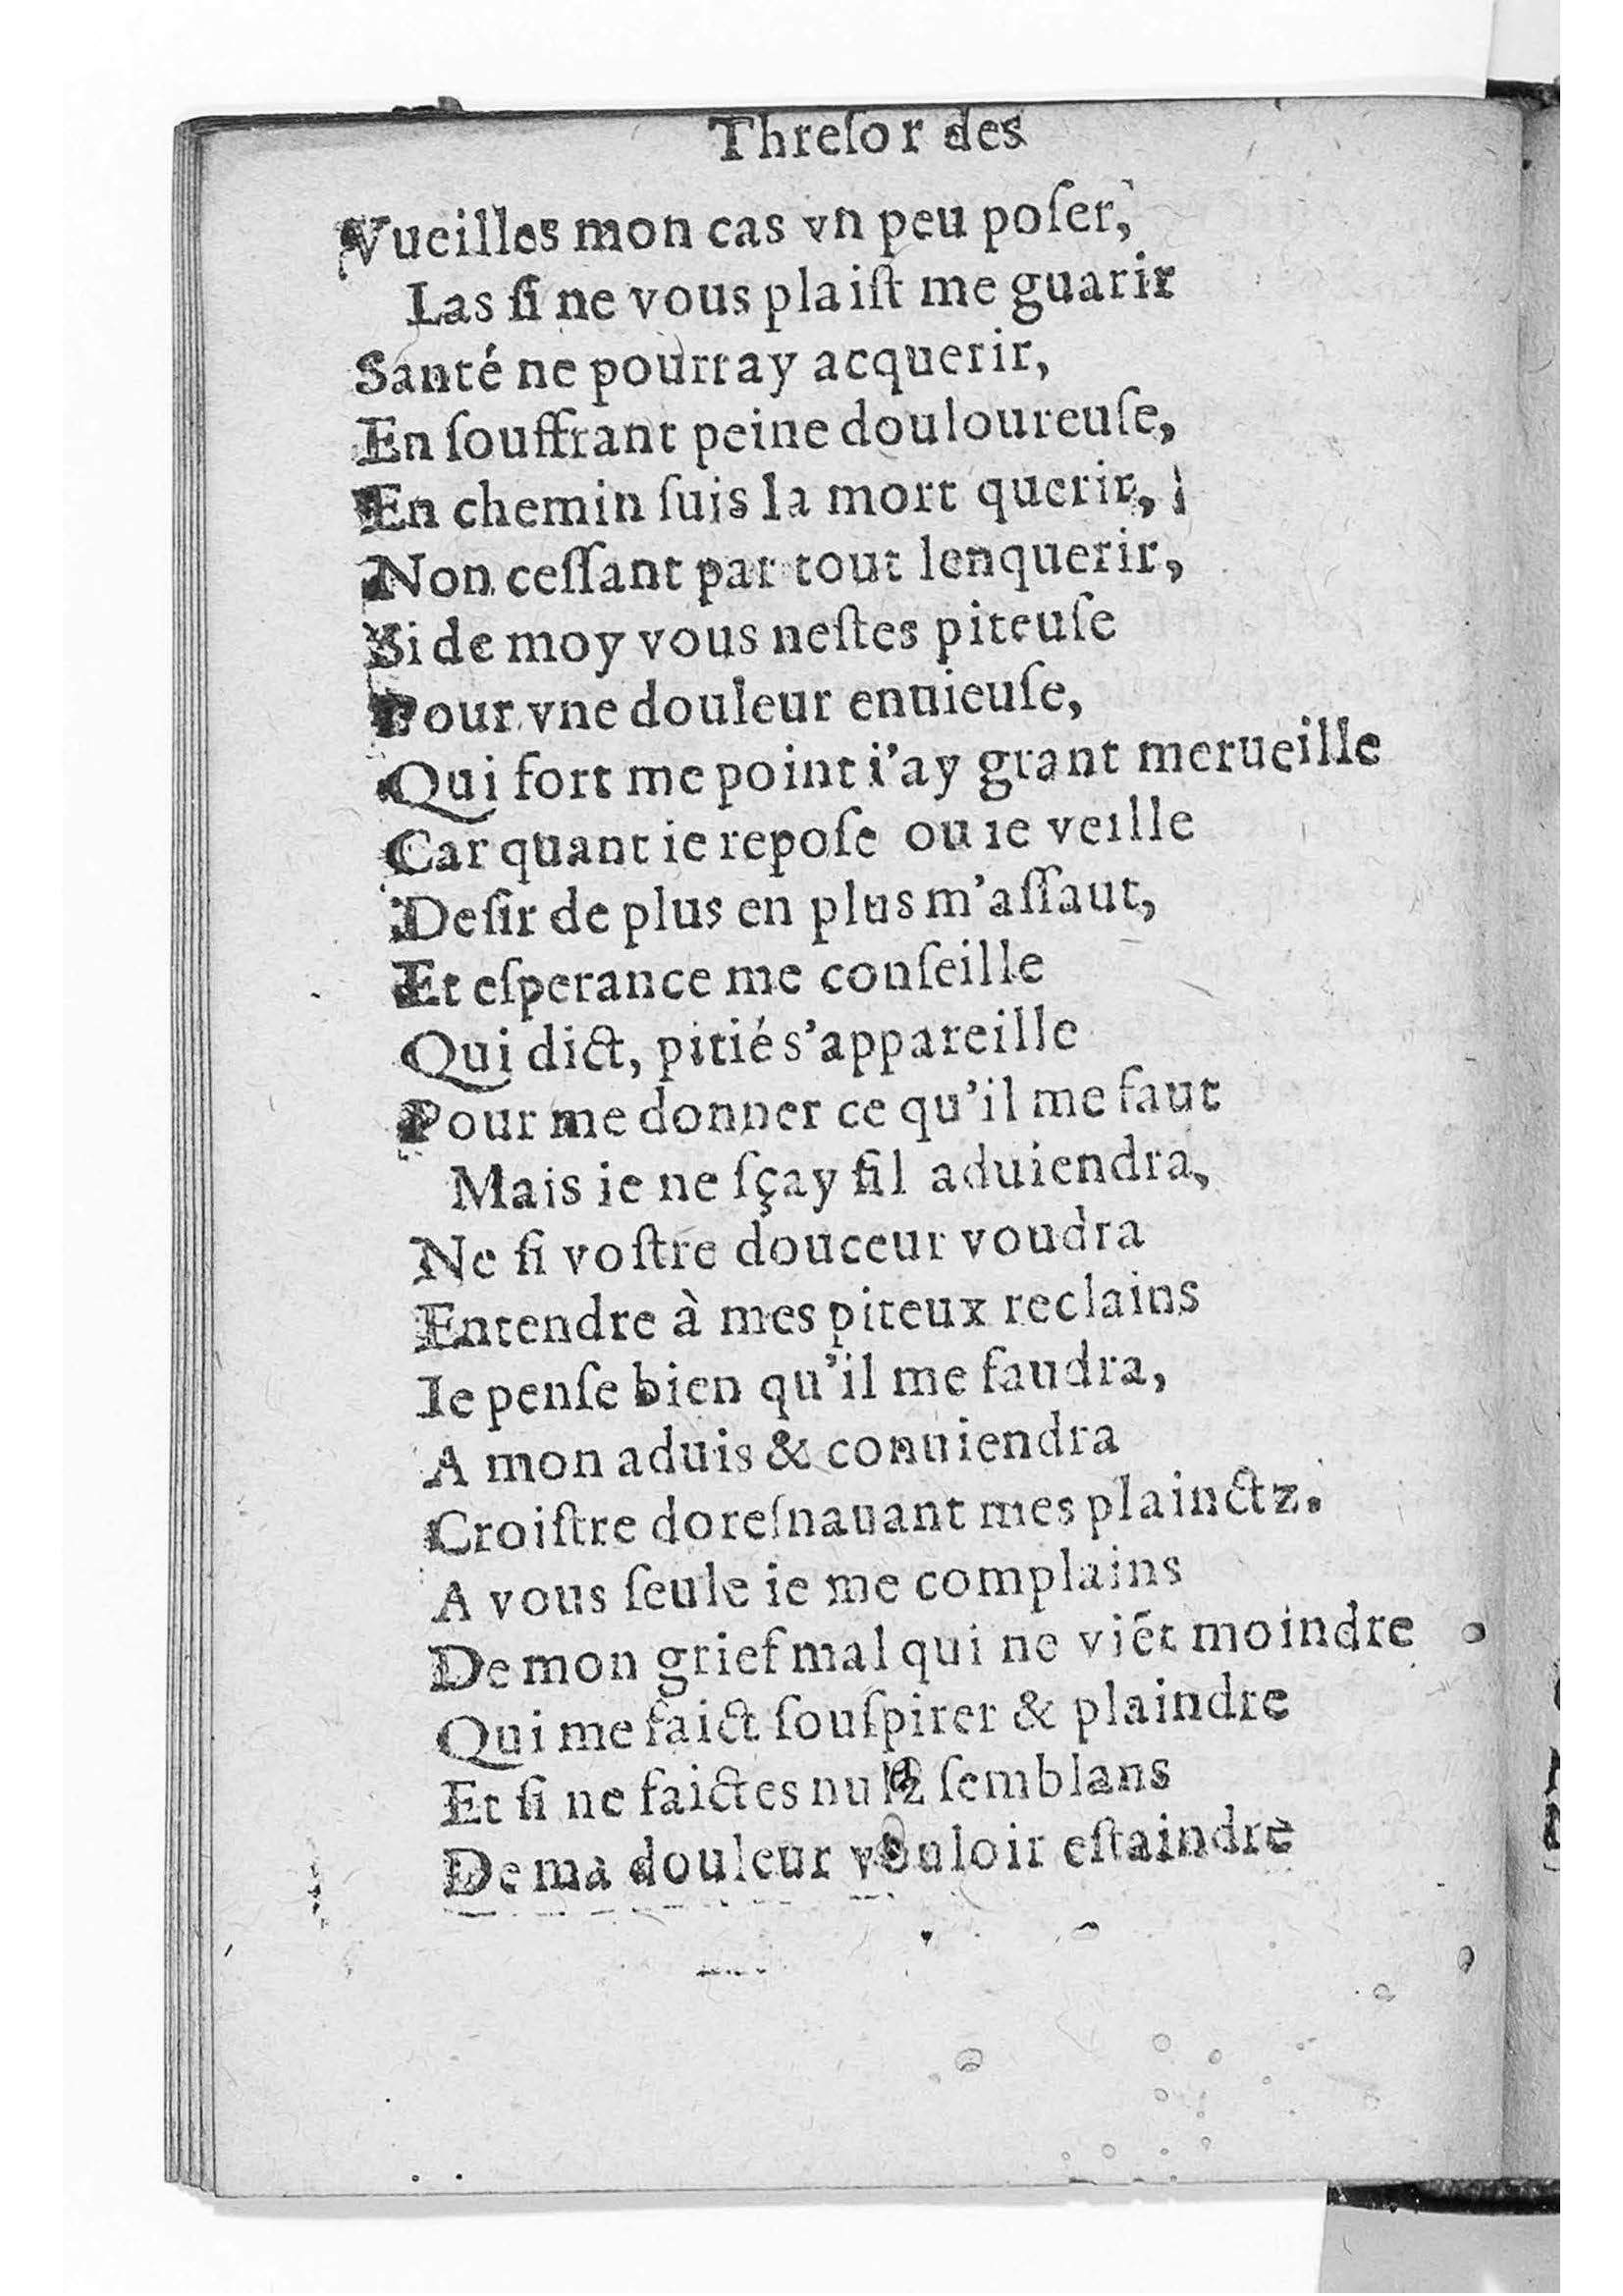 Threſor des
Vueilles mon cas vn peu poſer,
Las ſi ne vous plaiſt me guarir
Santé ne pourray acquerir,
En ſouffrant peine douloureuſe,
En chemin ſuis la mort querir,
Non ceſſant par tout lenquerir,
Si de moy vous neſtes piteuſe
Pour vne douleur ennuieuſe,
Qui fort me point i'ay grant merueille
Car quant ie repoſe ou ie veille
Deſir de plus en plus m'aſſaut,
Et eſperance me conſeille
Qui dict, pitié s'appareille
Pour me donner ce qu'il me faut
Mais ie ne ſçay ſil aduiendra,
Ne ſi voſtre douceur voudra
Entendre à mes piteux reclains
Ie penſe bien qu'il me faudra,
A mon aduis & conuiendra
Croiſtre doreſnauant mes plainctz.
A vous ſeule ie me complains
De mon grief mal qui ne viẽt moindre
Qui me faict ſouſpirer & plaindre
Et ſi ne faictes nulz ſemblans
De ma douleur vouloir eſtaindre